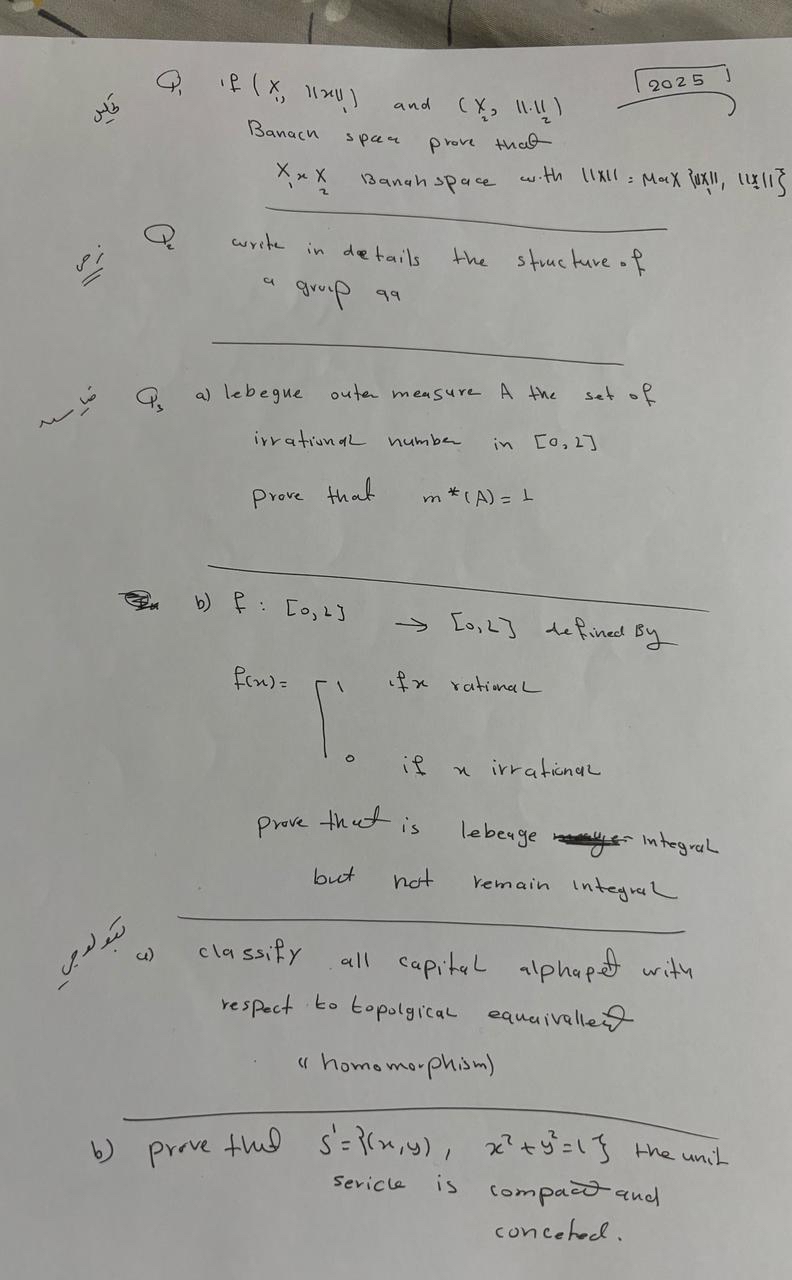 2025
Q1 if (X1, ||x||1) and (X2, ||.||2)
Banach space prove that
X1 x X2 Banah space with ||x|| = Max {||x||1, ||x||2}
Q2 write in details the structure of
a group 99
Q3 a) lebegue outer measure A the set of
irrational number in [0,1]
prove that m*(A) = 1
b) f : [0,1] → [0,1] defined By
f(x) = 1 if x rational
0 if x irrational
prove that is lebeage integral
but not remain integral
تبولوجي
a) classify all capital alphapet with
respect to topolgical equaivallent
(( homomorphism)
b) prove that S1 = {(x,y), x2 + y2 = 1} the unit
sericle is compact and
conceted.